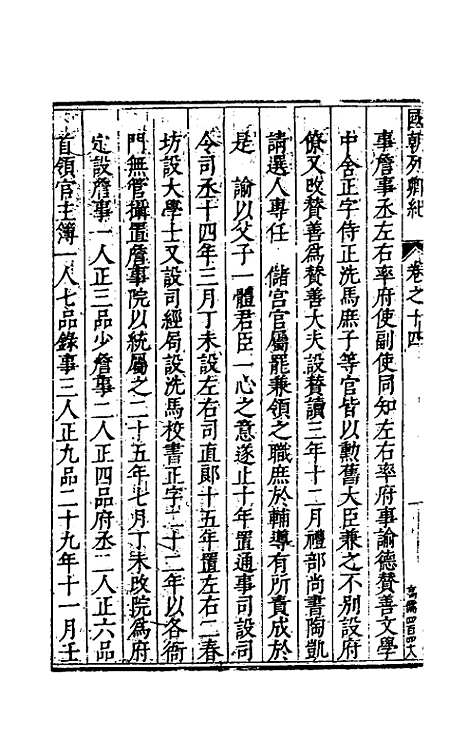 國朝列卿紀 卷之十四 一
事詹事丞左右率府使副使同知左右率府事諭德贊善文學
中舍正字侍正洗馬庶子等官皆以勳舊大臣兼之不別設府
僚又改贊善爲贊善大夫設贊讀三年十二月禮部尚書陶凱
請選人專任 儲宮官屬罷兼領之職庶於輔導有所責成於
是 諭以父子一體君臣一心之意遂止十年置通事司設司
令司丞十四年三月丁未設左右司直郎十五年置左右二春
坊設大學士又設司經局設洗馬校書正字二十二年以各衙
門無管攝置詹事院以統屬之二十五年七月丁未改院爲府
定設詹事一人正三品少詹事二人正四品府丞二人正六品
首領官主簿一人七品錄事三人正九品二十九年十一月壬